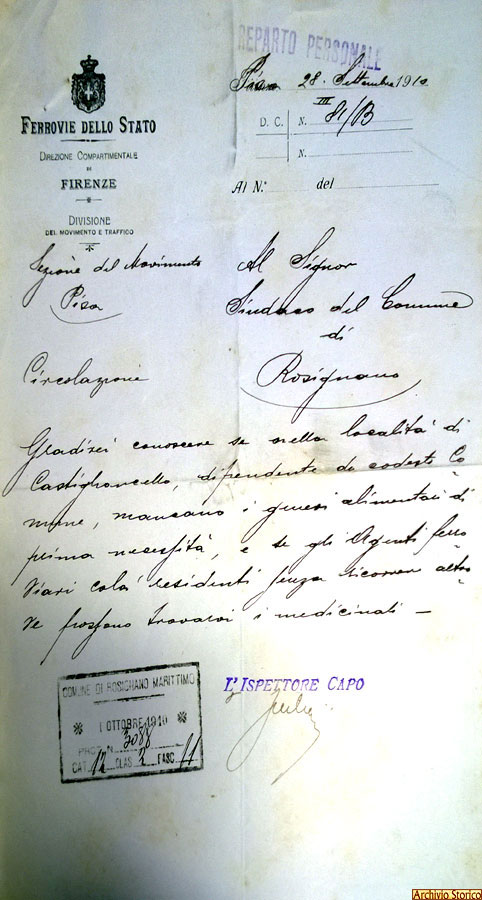 REPARTO PERSONALE
Pisa 28 Settembre 1910
FERROVIE DELLO STATO
DIREZIONE COMPARTIMENTALE
DI
FIRENZE
DIVISIONE
DEL MOVIMENTO E TRAFFICO
D. C. N. III 81/B
N.
AL N.° del
Sezione del Movimento
Pisa
Circolazione
Al Signor
Sindaco del Comune
di
Rosignano
Gradirei conoscere se nella località di
Castiglioncello, dipendente da codesto Co
mune, mancano i generi alimentari di
prima necessità, e se gli Agenti ferro
viari colà residenti senza ricorrere altro
ve possono trovarvi i medicinali —
L'ISPETTORE CAPO
COMUNE DI ROSIGNANO MARITTIMO
1 OTTOBRE 1910
PROT. N. 3088
CAT. 12 CLAS. 2 FASC. 11
Archivio Storico